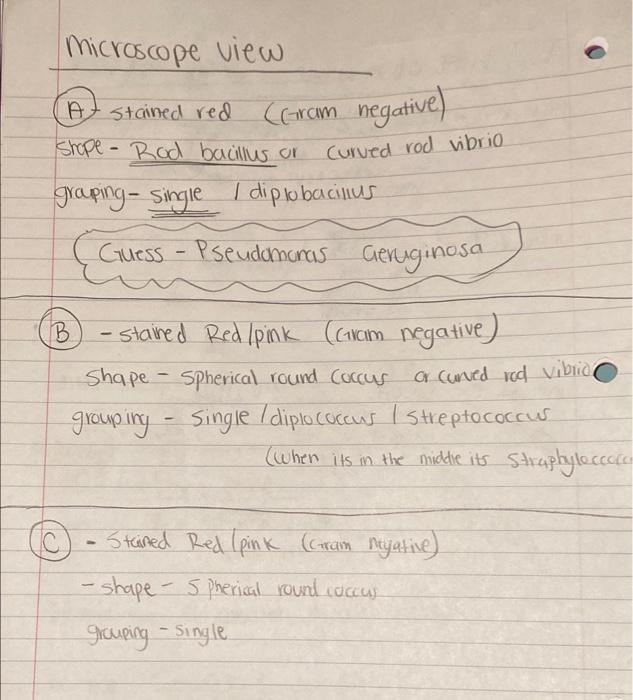 microscope view
A - stained red (Gram negative)
shape - Rod bacillus or curved rod vibrio
grouping - single / diplobacillus
Guess - Pseudomonas aeruginosa
B - stained Red/pink (Gram negative)
shape - spherical round coccus or curved rod vibrio
grouping - single / diplococcus / streptococcus
(when its in the middle its
C - Stained Red/pink (Gram negative)
- shape - spherical round coccus
grouping - single